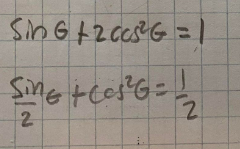 sin θ + 2 cos²θ = 1
sin/2 θ + cos²θ = 1/2